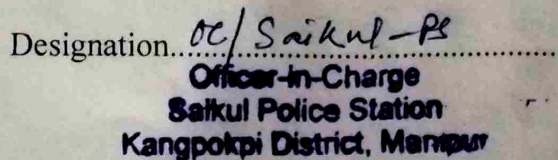 Designation...OC/Saikul-PS...
Officer-in-Charge
Saikul Police Station
Kangpokpi District, Manipur